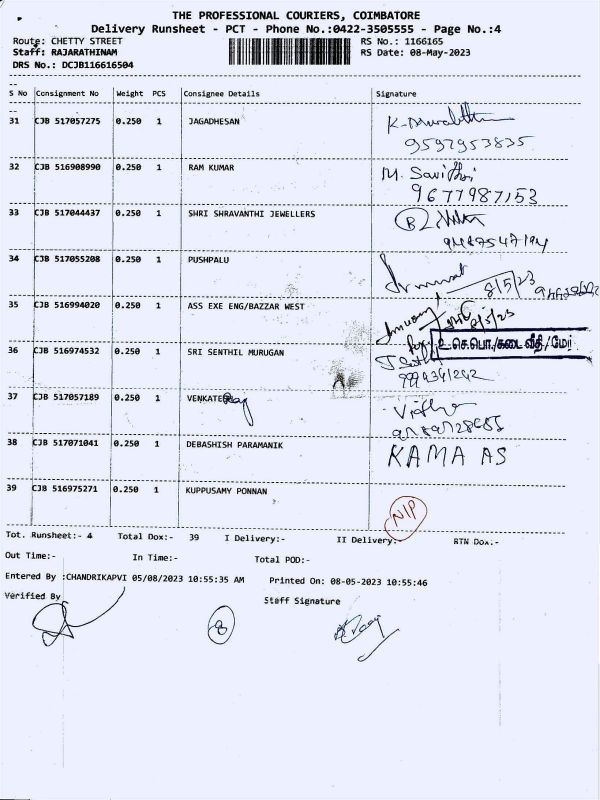 THE PROFESSIONAL COURIERS, COIMBATORE
Delivery Runsheet - PCT - Phone No.:0422-3505555 - Page No.:4
Route: CHETTY STREET RS No.: 1166165
Staff: RAJARATHINAM RS Date: 08-May-2023
DRS No.: DCJB116616504
S No Consignment No Weight PCS Consignee Details Signature
31 CJB 517057275 0.250 1 JAGADHESAN K.
9597953835
32 CJB 516908990 0.250 1 RAM KUMAR M. Savithri
9677987153
33 CJB 517044437 0.250 1 SHRI SHRAVANTHI JEWELLERS
34 CJB 517055208 0.250 1 PUSHPALU
8/5/23
35 CJB 516994020 0.250 1 ASS EXE ENG/BAZZAR WEST
8/5/23
for உ.செ.பொ./கடை வீதி/மேற்
36 CJB 516974532 0.250 1 SRI SENTHIL MURUGAN
37 CJB 517057189 0.250 1 VENKATE
38 CJB 517071041 0.250 1 DEBASHISH PARAMANIK KAMAAS
39 CJB 516975271 0.250 1 KUPPUSAMY PONNAN N/P
Tot. Runsheet:- 4 Total Dox:- 39 I Delivery:- II Delivery:- RTN Dox:-
Out Time:- In Time:- Total POD:-
Entered By :CHANDRIKAPVI 05/08/2023 10:55:35 AM Printed On: 08-05-2023 10:55:46
Verified By Staff Signature
8